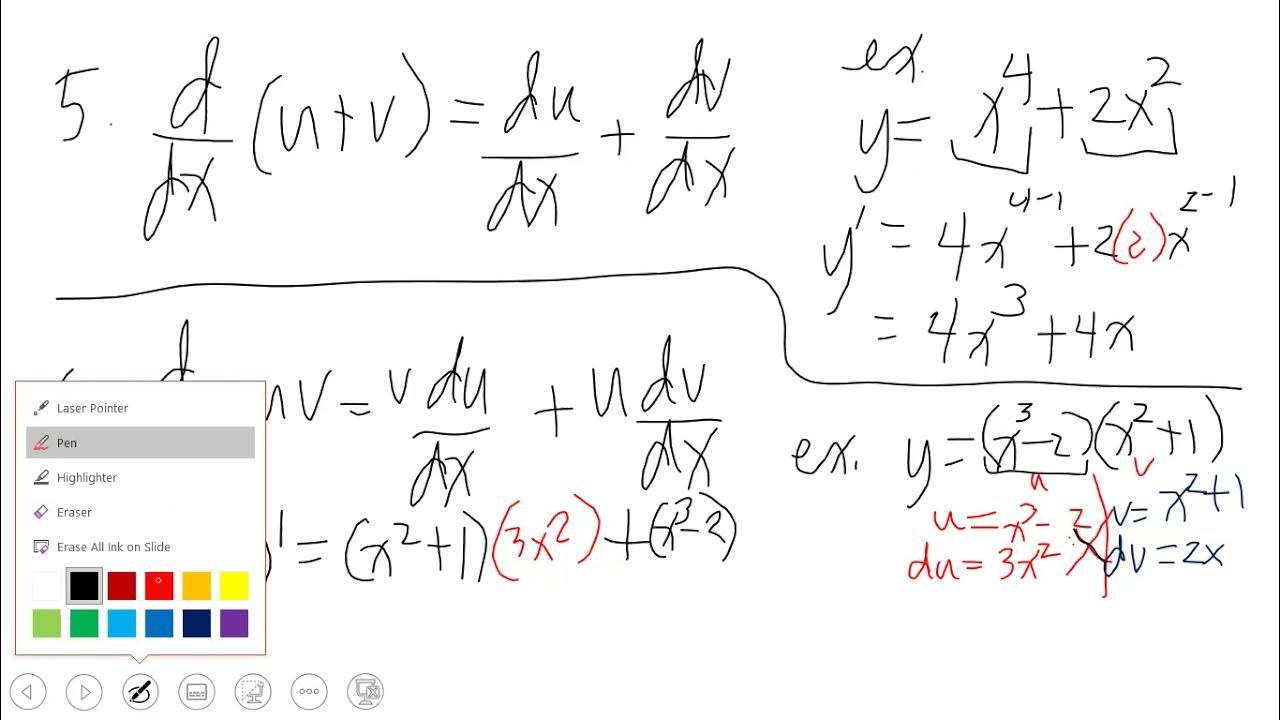 5. d/dx (u+v) = du/dx + dv/dx
ex.
y = x⁴ + 2x²
y' = 4x⁴⁻¹ + 2(2)x²⁻¹
= 4x³ + 4x
uv = v du/dx + u dv/dx
' = (x²+1)(3x²) + (x³-2)
ex. y = (x³-2)(x²+1)
u v
u = x³-2 v = x²+1
du = 3x² dv = 2x
Laser Pointer
Pen
Highlighter
Eraser
Erase All Ink on Slide